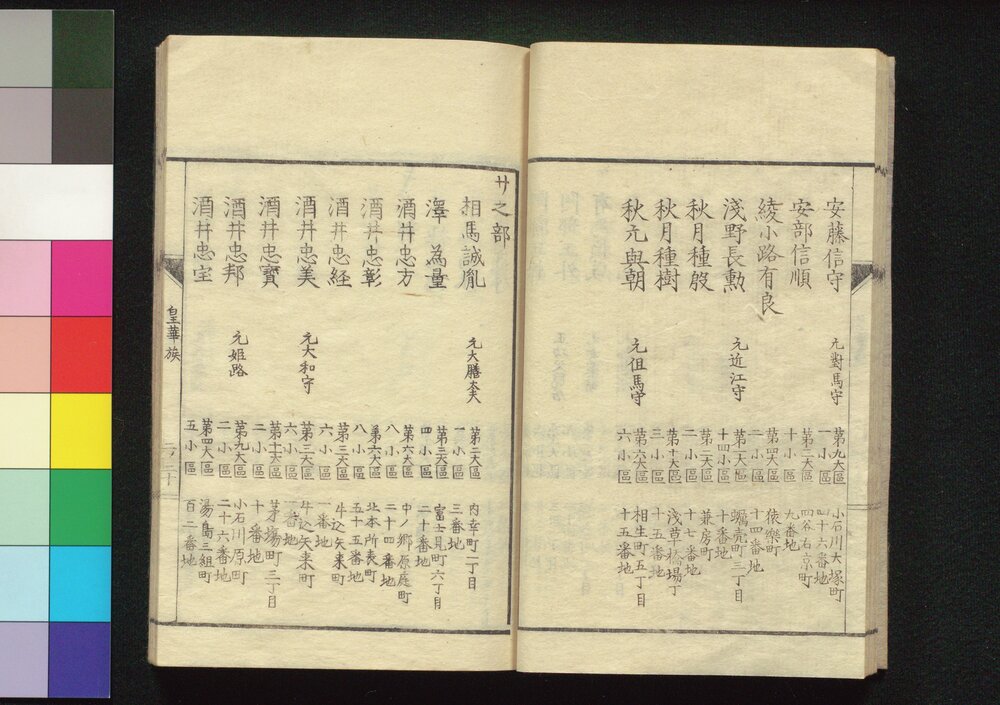 安藤信守 元對馬守 第九大區一小區 小石川大塚町四十六番地
安部信順 第三大區十小區 四谷右京町九番地
綾小路有良 第四大區二小區 猿樂町十四番地
淺野長勲 元近江守 第一大區十四小區 蠣売町三丁目十番地
秋月種殷 第二大區二小區 兼房町十七番地
秋月種樹 第十大區三小區 浅草橋場丁十五番地
秋元與朝 元但馬守 第六大區六小區 相生町五丁目十五番地
サ之部
相馬誠胤 元大膳太夫 第二大區一小區 内幸町一丁目三番地
澤為量 第三大區四小區 富士見町六丁目二十番地
酒井忠方 第六大區八小區 中ノ郷原庭町二十四番地
酒井忠彰 第六大區八小區 北本所表町五十五番地
酒井忠経 第三大區六小區 牛込矢来町一番地
酒井忠美 元大和守 第三大區六小區 牛込矢来町一番地
酒井忠寳 第十一大區二小區 茅場町三丁目十番地
酒井忠邦 元姫路 第九大區二小區 小石川原町二十六番地
酒井忠宝 第四大區五小區 湯島三組町百二番地
皇華族
二ノ三十